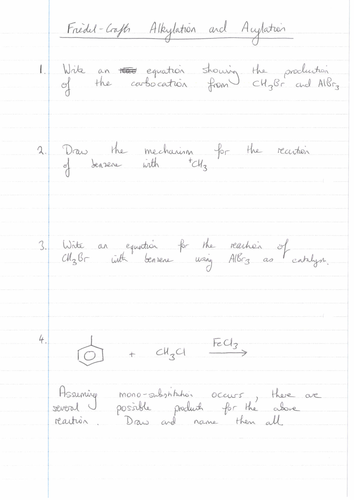 Friedel-Crafts Alkylation and Acylation
1. Write an equation showing the production
of the carbocation from CH₃Br and AlBr₃
2. Draw the mechanism for the reaction
of benzene with ⁺CH₃
3. Write an equation for the reaction of
CH₃Br with benzene using AlBr₃ as catalyst.
4. + CH₃Cl FeCl₃
Assuming mono-substitution occurs, there are
several possible products for the above
reaction. Draw and name them all